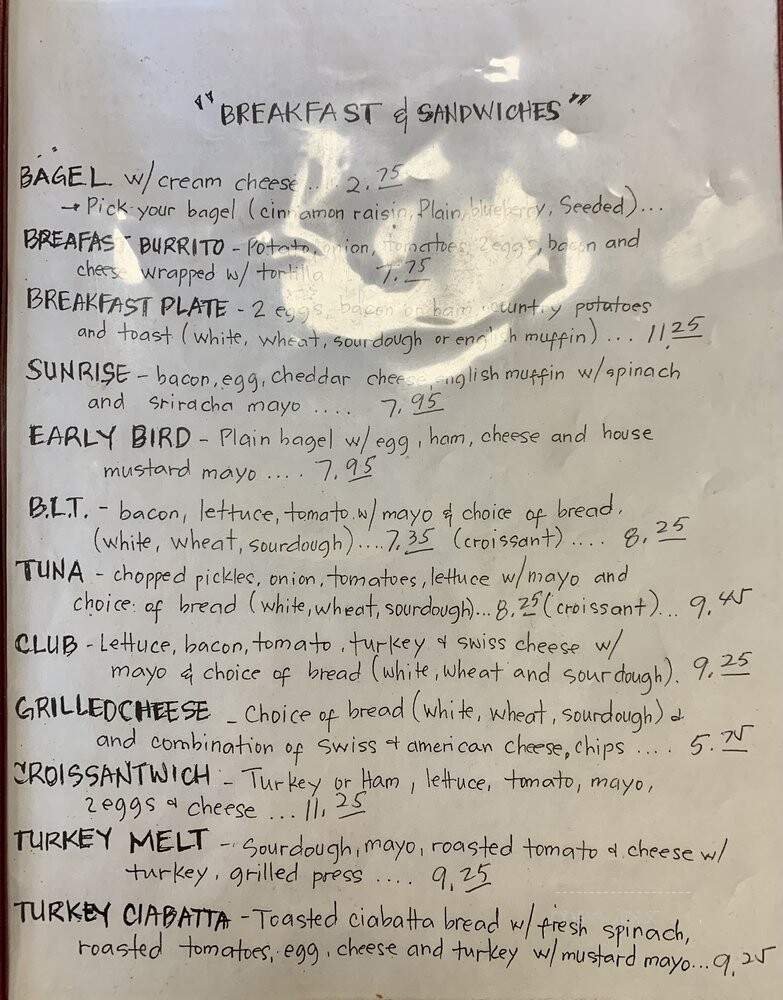 "BREAKFAST & SANDWICHES"
BAGEL w/ cream cheese... 2.75
→ Pick your bagel (cinnamon raisin, Plain, blueberry, Seeded)...
BREAFAST BURRITO - Potato, onion, tomatoes, 2 eggs, bacon and
cheese wrapped w/ tortilla 7.75
BREAKFAST PLATE - 2 eggs, bacon or ham, country potatoes
and toast (white, wheat, sourdough or english muffin) ... 11.25
SUNRISE - bacon, egg, cheddar cheese, english muffin w/spinach
and sriracha mayo .... 7.95
EARLY BIRD - Plain bagel w/ egg, ham, cheese and house
mustard mayo .... 7.95
B.L.T. - bacon, lettuce, tomato w/ mayo & choice of bread.
(white, wheat, sourdough)....7.35 (croissant) .... 8.25
TUNA - chopped pickles, onion, tomatoes, lettuce w/mayo and
choice of bread (white, wheat, sourdough)...8.25 (croissant)... 9.45
CLUB - Lettuce, bacon, tomato, turkey & swiss cheese w/
mayo & choice of bread (white, wheat and sourdough). 9.25
GRILLEDCHEESE - Choice of bread (white, wheat, sourdough) &
and combination of swiss & american cheese, chips .... 5.75
CROISSANTWICH - Turkey or Ham, lettuce, tomato, mayo,
2 eggs & cheese ... 11.25
TURKEY MELT - Sourdough, mayo, roasted tomato & cheese w/
turkey, grilled press .... 9.25
TURKEY CIABATTA - Toasted ciabatta bread w/ fresh spinach,
roasted tomatoes, egg, cheese and turkey w/ mustard mayo...9.25